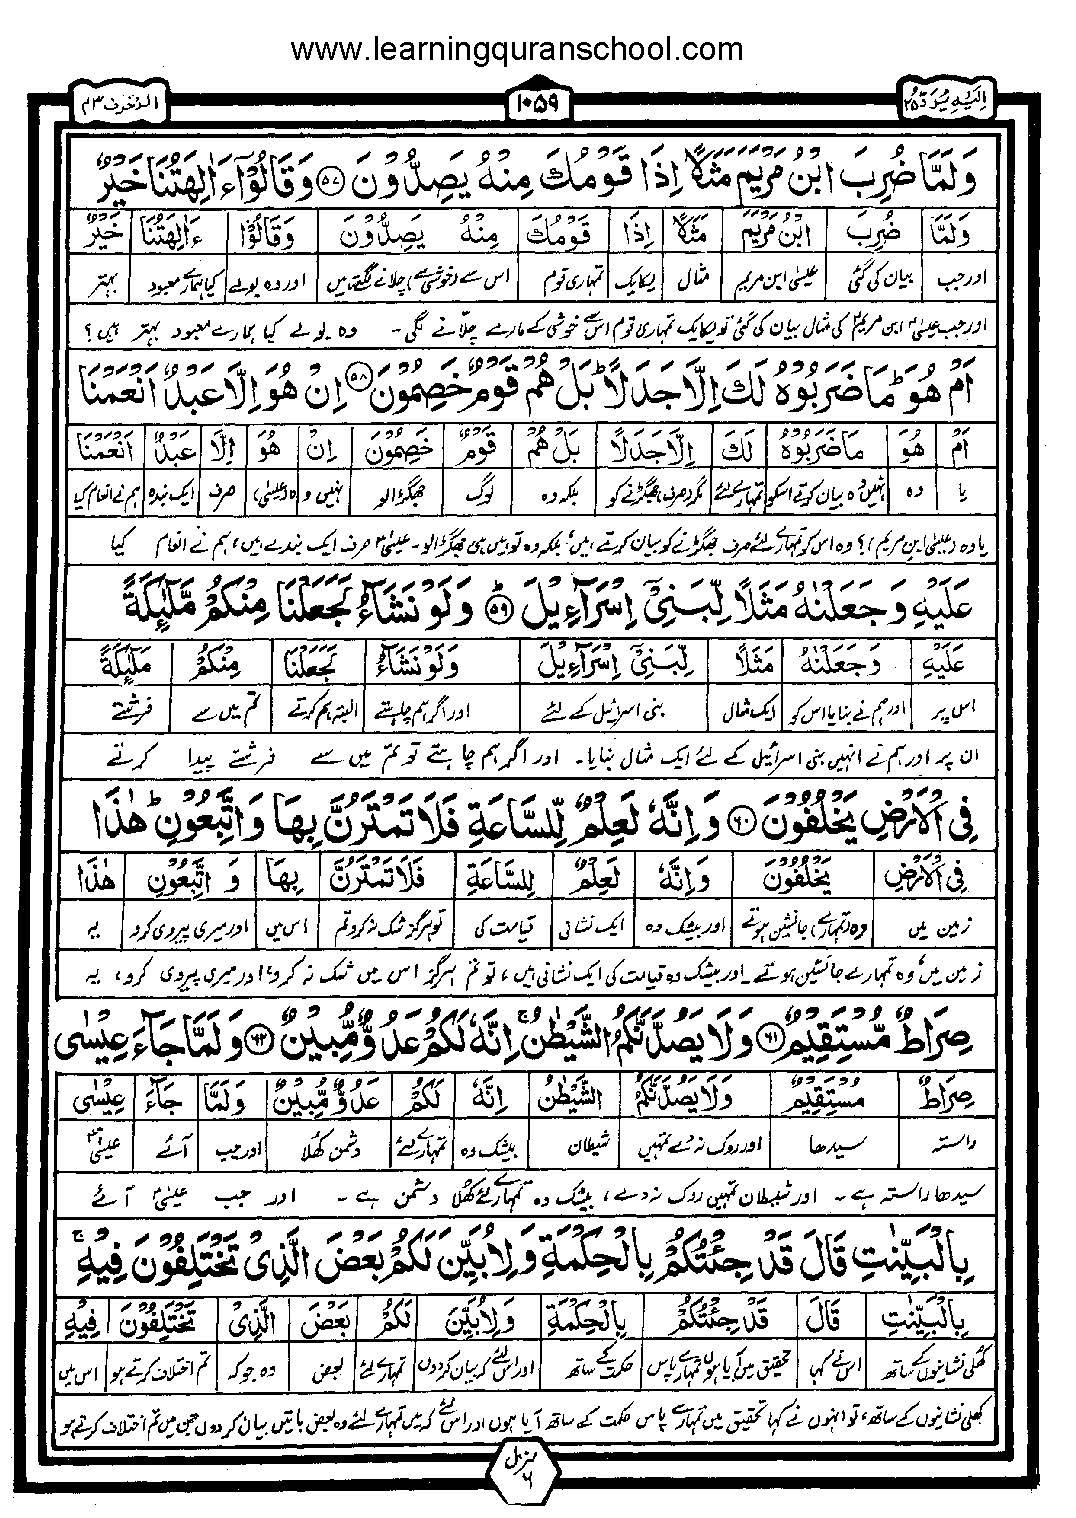 www.learningquranschool.com
اِلَيْهِ يُرَدُّ ٢٥
١٠٥٩
الزخرف ٤٣
وَلَمَّا ضُرِبَ ابْنُ مَرْيَمَ مَثَلًا اِذَا قَوْمُكَ مِنْهُ يَصِدُّوْنَ ۝٥٧ وَقَالُوْٓا ءَاٰلِهَتُنَا خَيْرٌ
وَلَمَّا ضُرِبَ ابْنُ مَرْيَمَ مَثَلًا اِذَا قَوْمُكَ مِنْهُ يَصِدُّوْنَ وَقَالُوْٓا ءَاٰلِهَتُنَا خَيْرٌ
اور جب بیان کی گئی عیسیٰ ابن مریم مثال یکایک تمہاری قوم اس سے (خوشی سے) چلانے لگتے ہیں اور وہ بولے کیا ہمارے معبود بہتر
اور جب عیسیٰؑ ابن مریم کی مثال بیان کی گئی تو یکایک تمہاری قوم اس سے خوشی کے مارے چلّانے لگی۔ وہ بولے کیا ہمارے معبود بہتر ہیں؟
اَمْ هُوَ ؕ مَا ضَرَبُوْهُ لَكَ اِلَّا جَدَلًا ؕ بَلْ هُمْ قَوْمٌ خَصِمُوْنَ ۝٥٨ اِنْ هُوَ اِلَّا عَبْدٌ اَنْعَمْنَا
اَمْ هُوَ مَا ضَرَبُوْهُ لَكَ اِلَّا جَدَلًا بَلْ هُمْ قَوْمٌ خَصِمُوْنَ اِنْ هُوَ اِلَّا عَبْدٌ اَنْعَمْنَا
یا وہ نہیں وہ بیان کرتے اسکو تمہارے لئے مگر (صرف) جھگڑنے کو بلکہ وہ لوگ جھگڑالو نہیں وہ (عیسیٰ) صرف ایک بندہ ہم نے انعام کیا
یا وہ (عیسیٰ ابن مریم)؟ وہ اس کو تمہارے لئے صرف جھگڑنے کو بیان کرتے ہیں، بلکہ وہ تو ہیں ہی جھگڑالو۔ عیسیٰؑ صرف ایک بندے ہیں، ہم نے انعام کیا
عَلَيْهِ وَجَعَلْنٰهُ مَثَلًا لِّبَنِيْٓ اِسْرَآءِيْلَ ۝٥٩ وَلَوْ نَشَآءُ لَجَعَلْنَا مِنْكُمْ مَّلٰٓئِكَةً
عَلَيْهِ وَجَعَلْنٰهُ مَثَلًا لِّبَنِيْٓ اِسْرَآءِيْلَ وَلَوْ نَشَآءُ لَجَعَلْنَا مِنْكُمْ مَلٰٓئِكَةً
اس پر اور ہم نے بنایا اس کو ایک مثال بنی اسرائیل کے لئے اور اگر ہم چاہتے البتہ ہم کرتے تم میں سے فرشتے
ان پر اور ہم نے انہیں بنی اسرائیل کے لئے ایک مثال بنایا۔ اور اگر ہم چاہتے تو تم میں سے فرشتے پیدا کرتے
فِي الْاَرْضِ يَخْلُفُوْنَ ۝٦٠ وَاِنَّهٗ لَعِلْمٌ لِّلسَّاعَةِ فَلَا تَمْتَرُنَّ بِهَا وَاتَّبِعُوْنِ ؕ هٰذَا
فِي الْاَرْضِ يَخْلُفُوْنَ وَاِنَّهٗ لَعِلْمٌ لِّلسَّاعَةِ فَلَا تَمْتَرُنَّ بِهَا وَ اتَّبِعُوْنِ هٰذَا
زمین میں وہ (تمہارے) جانشین ہوتے اور بیشک وہ ایک نشانی قیامت کی تو ہرگز شک نہ کرو تم اس میں اور میری پیروی کرو یہ
زمین میں، وہ تمہارے جانشین ہوتے۔ اور بیشک وہ قیامت کی ایک نشانی ہیں، تو تم ہرگز اس میں شک نہ کرو اور میری پیروی کرو، یہ
صِرَاطٌ مُّسْتَقِيْمٌ ۝٦١ وَلَا يَصُدَّنَّكُمُ الشَّيْطٰنُ ۚ اِنَّهٗ لَكُمْ عَدُوٌّ مُّبِيْنٌ ۝٦٢ وَلَمَّا جَآءَ عِيْسٰى
صِرَاطٌ مُسْتَقِيْمٌ وَلَا يَصُدَّنَّكُمُ الشَّيْطٰنُ اِنَّهٗ لَكُمْ عَدُوٌّ مُّبِيْنٌ وَلَمَّا جَآءَ عِيْسٰى
راستہ سیدھا اور روک نہ دے تمہیں شیطان بیشک وہ تمہارے لئے دشمن کھلا اور جب آئے عیسیٰؑ
سیدھا راستہ ہے۔ اور شیطان تمہیں روک نہ دے، بیشک وہ تمہارے لئے کھلا دشمن ہے۔ اور جب عیسیٰؑ آئے
بِالْبَيِّنٰتِ قَالَ قَدْ جِئْتُكُمْ بِالْحِكْمَةِ وَلِاُبَيِّنَ لَكُمْ بَعْضَ الَّذِيْ تَخْتَلِفُوْنَ فِيْهِ ۚ
بِالْبَيِّنٰتِ قَالَ قَدْ جِئْتُكُمْ بِالْحِكْمَةِ وَلِاُبَيِّنَ لَكُمْ بَعْضَ الَّذِيْ تَخْتَلِفُوْنَ فِيْهِ
کھلی نشانیوں کے ساتھ اس نے کہا تحقیق میں آیا ہوں تمہارے پاس حکمت کے ساتھ اور اس لئے کہ بیان کر دوں تمہارے لئے بعض وہ جو کہ تم اختلاف کرتے ہو اس میں
کھلی نشانیوں کے ساتھ، تو انہوں نے کہا تحقیق میں تمہارے پاس حکمت کے ساتھ آیا ہوں اور اس لئے کہ میں تمہارے لئے وہ بعض باتیں بیان کر دوں جن میں تم اختلاف کرتے ہو
منزل ٦